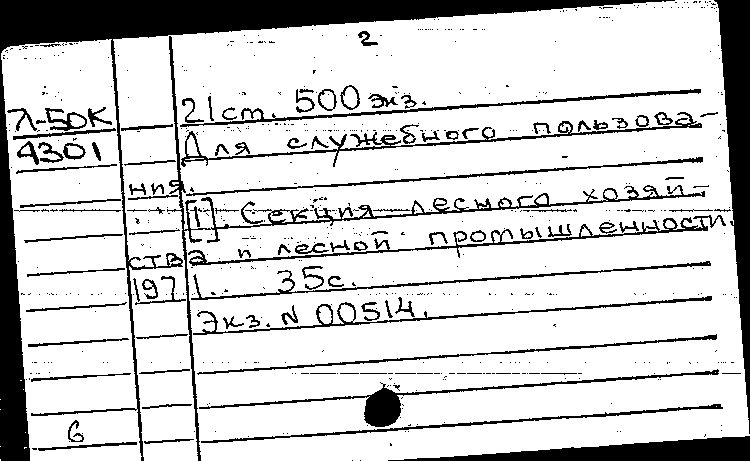 2
Л-50К 21 ст. 500 экз.
4301 Для служебного пользова-
ния.
[1]. Секция лесного хозяй-
ства и лесной промышленности.
1971.. 35с.
Экз. N 00514.
6